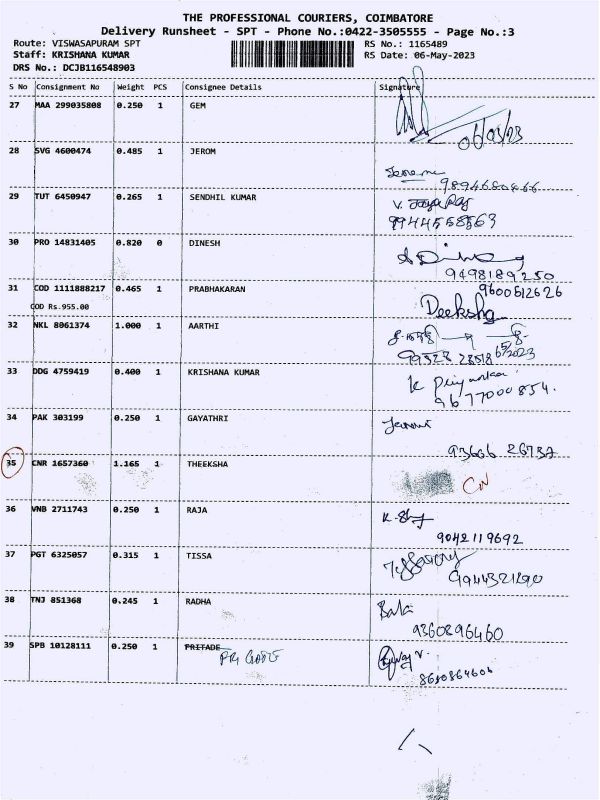 THE PROFESSIONAL COURIERS, COIMBATORE
Delivery Runsheet - SPT - Phone No.:0422-3505555 - Page No.:3
Route: VISWASAPURAM SPT RS No.: 1165489
Staff: KRISHANA KUMAR RS Date: 06-May-2023
DRS No.: DCJB116548903
S No Consignment No Weight PCS Consignee Details Signature
27 MAA 299035808 0.250 1 GEM
28 SVG 4600474 0.485 1 JEROM
29 TUT 6450947 0.265 1 SENDHIL KUMAR
9944558563
30 PRO 14831405 0.820 0 DINESH
9498189250
31 COD 1111888217 0.465 1 PRABHAKARAN 9600512626
COD Rs.955.00
32 NKL 8061374 1.000 1 AARTHI
33 DDG 4759419 0.400 1 KRISHANA KUMAR K Priyanka
9677000854.
34 PAK 303199 0.250 1 GAYATHRI
35 CNR 1657360 1.165 1 THEEKSHA CN
36 VNB 2711743 0.250 1 RAJA
9042119692
37 PGT 6325057 0.315 1 TISSA
9944321290
38 TNJ 851368 0.245 1 RADHA Bala
9360896460
39 SPB 10128111 0.250 1 PRITADE